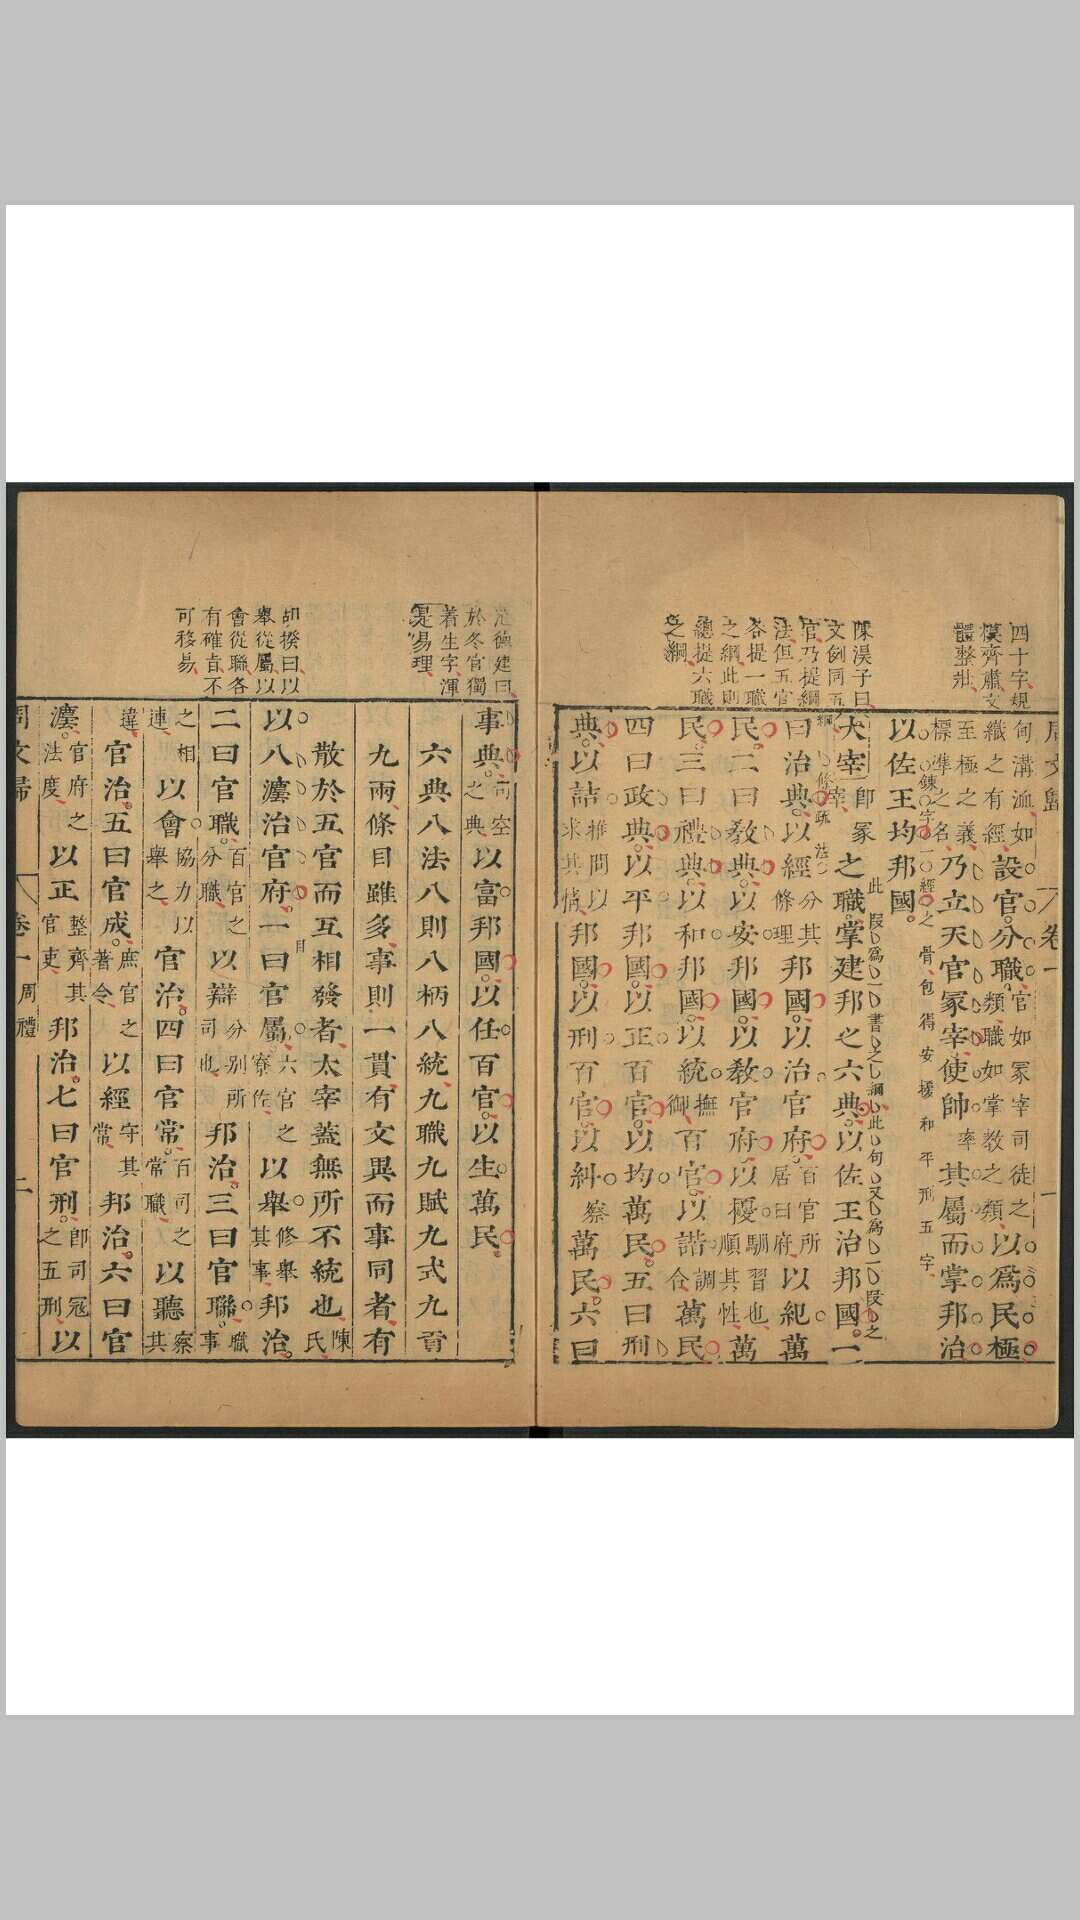 四十字規
模齊肅文
體整壯
陳淏子曰
文例同五
官乃提綱
法但五官
各提一職
之綱此則
總提六職
之綱
卷一
甸溝洫如設官分職官如冢宰司徒之
織之有經類職如掌教之類以爲民極
至極之義
標準之名乃立天官冢宰使帥率其屬而掌邦治
以佐王均邦國
錬字
大宰卽冢宰之職掌建邦之六典以佐王治邦國一
曰治典以經分其條理邦國以治官府百官所居曰府以紀萬
民二曰教典以安邦國以教官府以擾馴習也順其性萬
民三曰禮典以和邦國以統撫御百官以諧調合萬民
四曰政典以平邦國以正百官以均萬民五曰刑
典以詰推問以求其情邦國以刑百官以糾察萬民六曰
於冬官獨
着生字渾
是易理
胡揆曰以
舉從屬以
會從聯各
有確旨不
可移易
事典司空之典以富邦國以任百官以生萬民
六典八法八則八柄八統九職九賦九式九貢
九兩條目雖多事則一貫有文異而事同者有
散於五官而互相發者太宰蓋無所不統也陳氏
以八灋治官府一曰官屬六官之寮佐以舉修舉其事邦治
二曰官職百官之分職以辯分别所司也邦治三曰官聯職事
之相連以會協力以舉之官治四曰官常百司之常職以聽察其
違官治五曰官成庶官之著令以經守其常邦治六曰官
灋官府之法度以正整齊其官吏邦治七曰官刑卽司寇之五刑以
周文歸
卷一
周禮
二